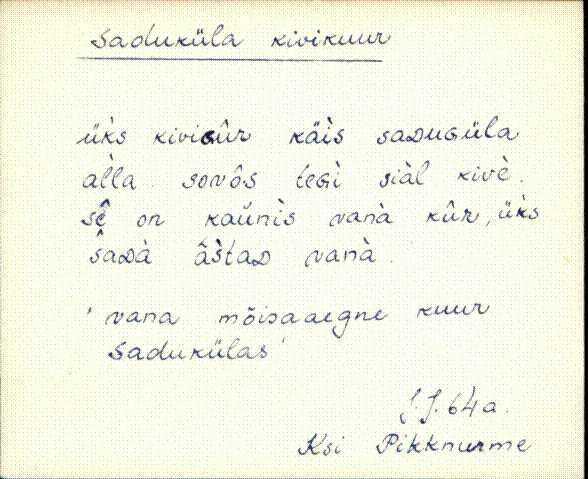 Saduküla kivikuur
üks̀ kiviGûr käìs saDuGüla
al̀la. sovôs teGì siàl kivè.
sê on kaùnìs vanà kûr, üks̀
saDà âs̀taD vanà.
' vana mõisaaegne kuur
Sadukülas '
J.J. 64 a.
Ksi Pikknurme